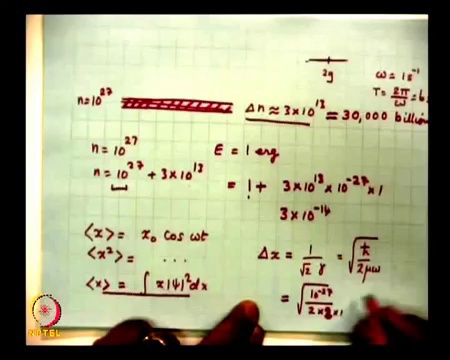 2g
ω = 1 s⁻¹
T = 2π/ω = 6
n = 10²⁷
Δn ≈ 3 × 10¹³ = 30,000 billion
n = 10²⁷
E = 1 erg
n = 10²⁷ + 3 × 10¹³
= 1 + 3 × 10¹³ × 10⁻²⁷ × 1
3 × 10⁻¹⁴
<x> = x₀ cos ωt
<x²> = . . .
Δx = 1/(√2 γ) = √(ħ/2μω)
<x> = ∫ x|ψ|² dx
= √(10⁻²⁷/2×2×1)
NPTEL